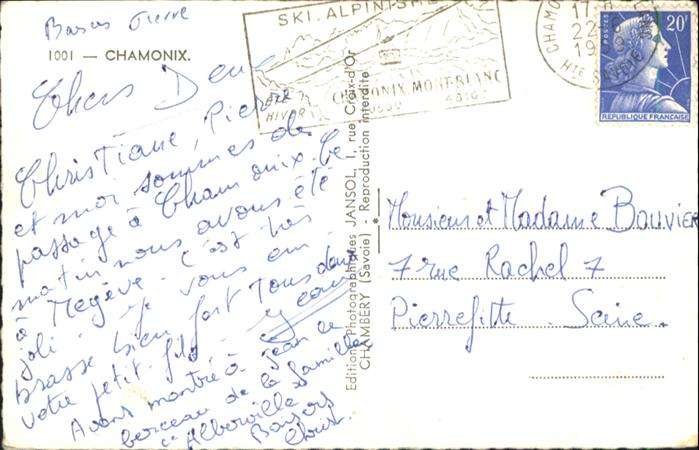 Baisers Pierre
1001 — CHAMONIX.
Chers Deux
Christiane, Pierre
et moi sommes de
passage à Chamonix. Ce
matin nous avons été
à Megève - c'est très
joli - Je vous em-
brasse bien fort tous deux
votre petit fils
Avons montré à Jean le
berceau de la famille
"Alberville"
Baisers
Christ.
SKI. ALPINISME
CHAMONIX MONT-BLANC
HIVER
CHAMONIX
17 H
22
19
HTE SAVOIE
POSTES
20F
REPUBLIQUE FRANÇAISE
Editions Photographiques JANSOL, 1, rue Croix-d'Or
CHAMBÉRY (Savoie) - Reproduction interdite
Monsieur et Madame BOUVIER
7 rue Rachel 7
Pierrefitte Seine.